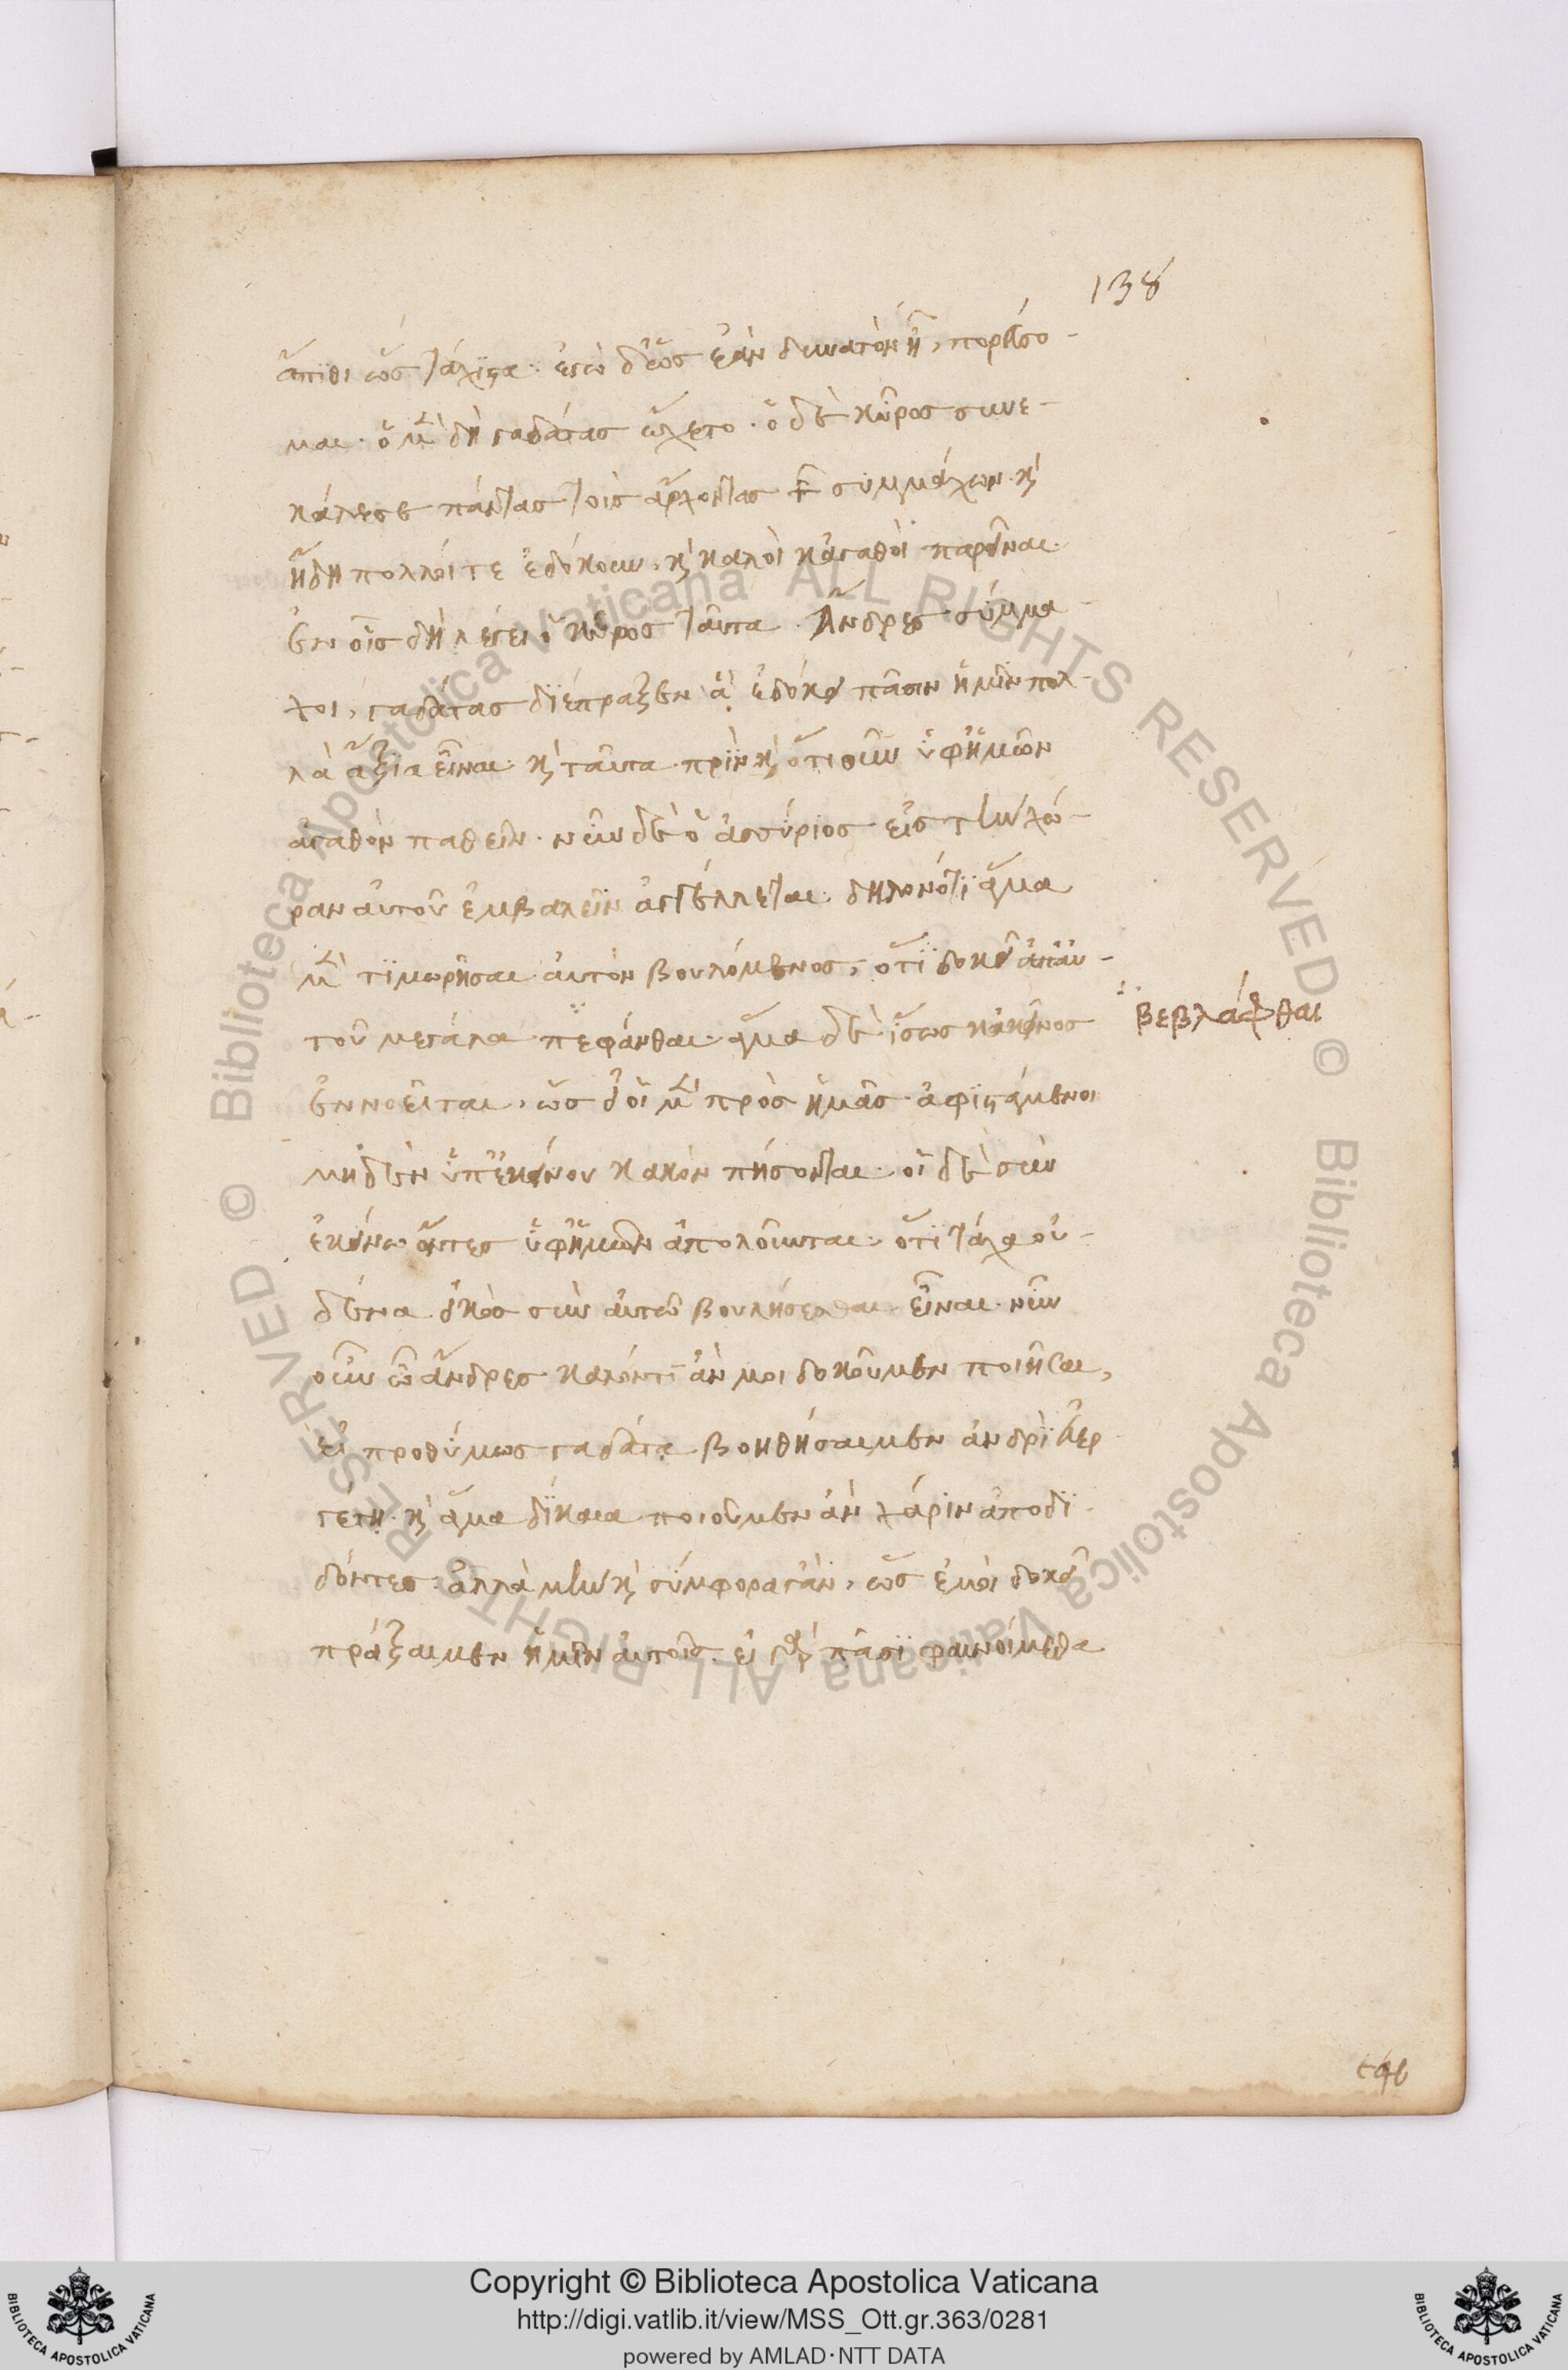 138
ἄπιθι ὡς τάχιστα· ἐγὼ δ' ὡς ἐὰν δυνατὸν ἦ, πορεύσο-
μαι· ὁ μὲν δὴ γαδάτας ὤχετο· ὁ δὲ κῦρος συνε-
κάλεσε πάντας τοὺς ἄρχοντας τῶν συμμάχων· καὶ
ἤδη πολλοί τε ἐδόκουν, καὶ καλοὶ κἀγαθοὶ παρεῖναι·
ἐν οἷς δὴ λέγει ὁ κῦρος ταῦτα· Ἄνδρες σύμμα-
χοι, γαδάτας διέπραξεν ἃ ἐδόκει πᾶσιν ἡμῖν πολ-
λὰ ἄξια εἶναι· καὶ ταῦτα πρὶν καὶ ὁτιοῦν ὑφ' ἡμῶν
ἀγαθὸν παθεῖν· νῦν δὲ ὁ ἀσσύριος εἰς τὴν χώ-
ραν αὐτοῦ ἐμβαλεῖν ἀγγέλλεται· δηλονότι ἅμα
μὲν τιμωρῆσαι αὐτὸν βουλόμενος, ὅτι δοκεῖ ὑπ' αὐ-
τοῦ μεγάλα πεφάνθαι· ἅμα δὲ ἴσως κἀκεῖνος
ἐννοεῖται, ὡς εἰ οἱ μὲν πρὸς ἡμᾶς ἀφιστάμενοι
μηδὲν ὑπ' ἐκείνου κακὸν πήσονται· οἱ δὲ σὺν
ἐκείνω ὄντες ὑφ' ἡμῶν ἀπολοῦνται· ὅτι τάχα οὐ-
δένα εἰκὸς σὺν αὐτῶ βουλήσεσθαι εἶναι· νῦν
οὖν ὦ ἄνδρες καλόν τι ἄν μοι δοκοῦμεν ποιῆσαι,
εἰ προθύμως γαδάτα βοηθήσαιμεν ἀνδρὶ εὐερ
γέτη· καὶ ἅμα δίκαια ποιοῦμεν ἂν χάριν ἀποδι
δόντες· ἀλλὰ μὴν καὶ σύμφορά γ' ἂν, ὡς ἐμοὶ δοκεῖ
πράξαιμεν ἡμῖν αὐτοῖς· εἰ γὰρ πᾶσι φαινοίμεθα
βεβλάφθαι
Copyright © Biblioteca Apostolica Vaticana
http://digi.vatlib.it/view/MSS_Ott.gr.363/0281
powered by AMLAD·NTT DATA